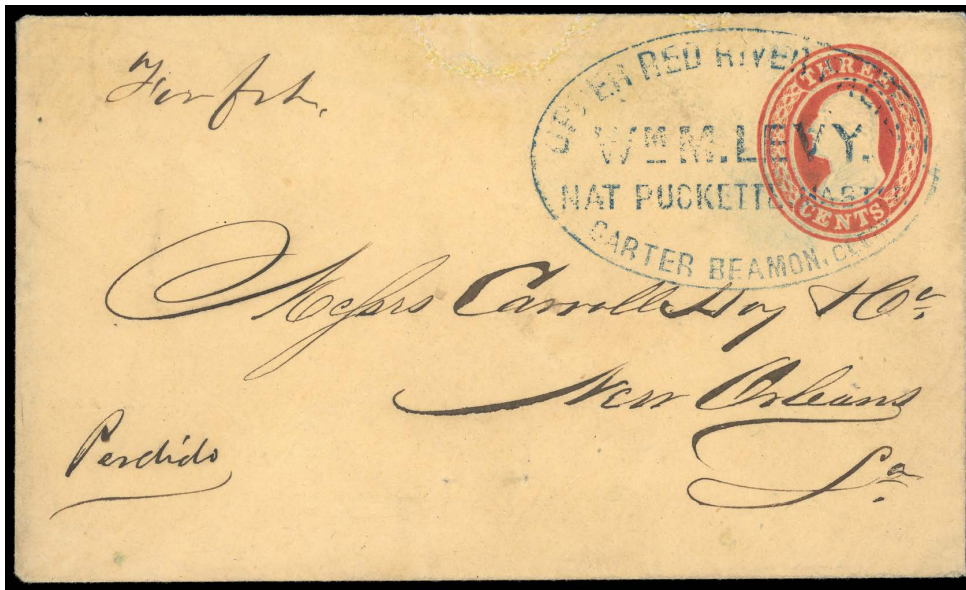 UPPER RED RIVER
Wm. M. LEVY.
NAT PUCKETTE, MAST
CARTER BEAMON, CLE
THREE
CENTS
Messrs Carroll Hoy & Co.
New Orleans
La.
Perdido